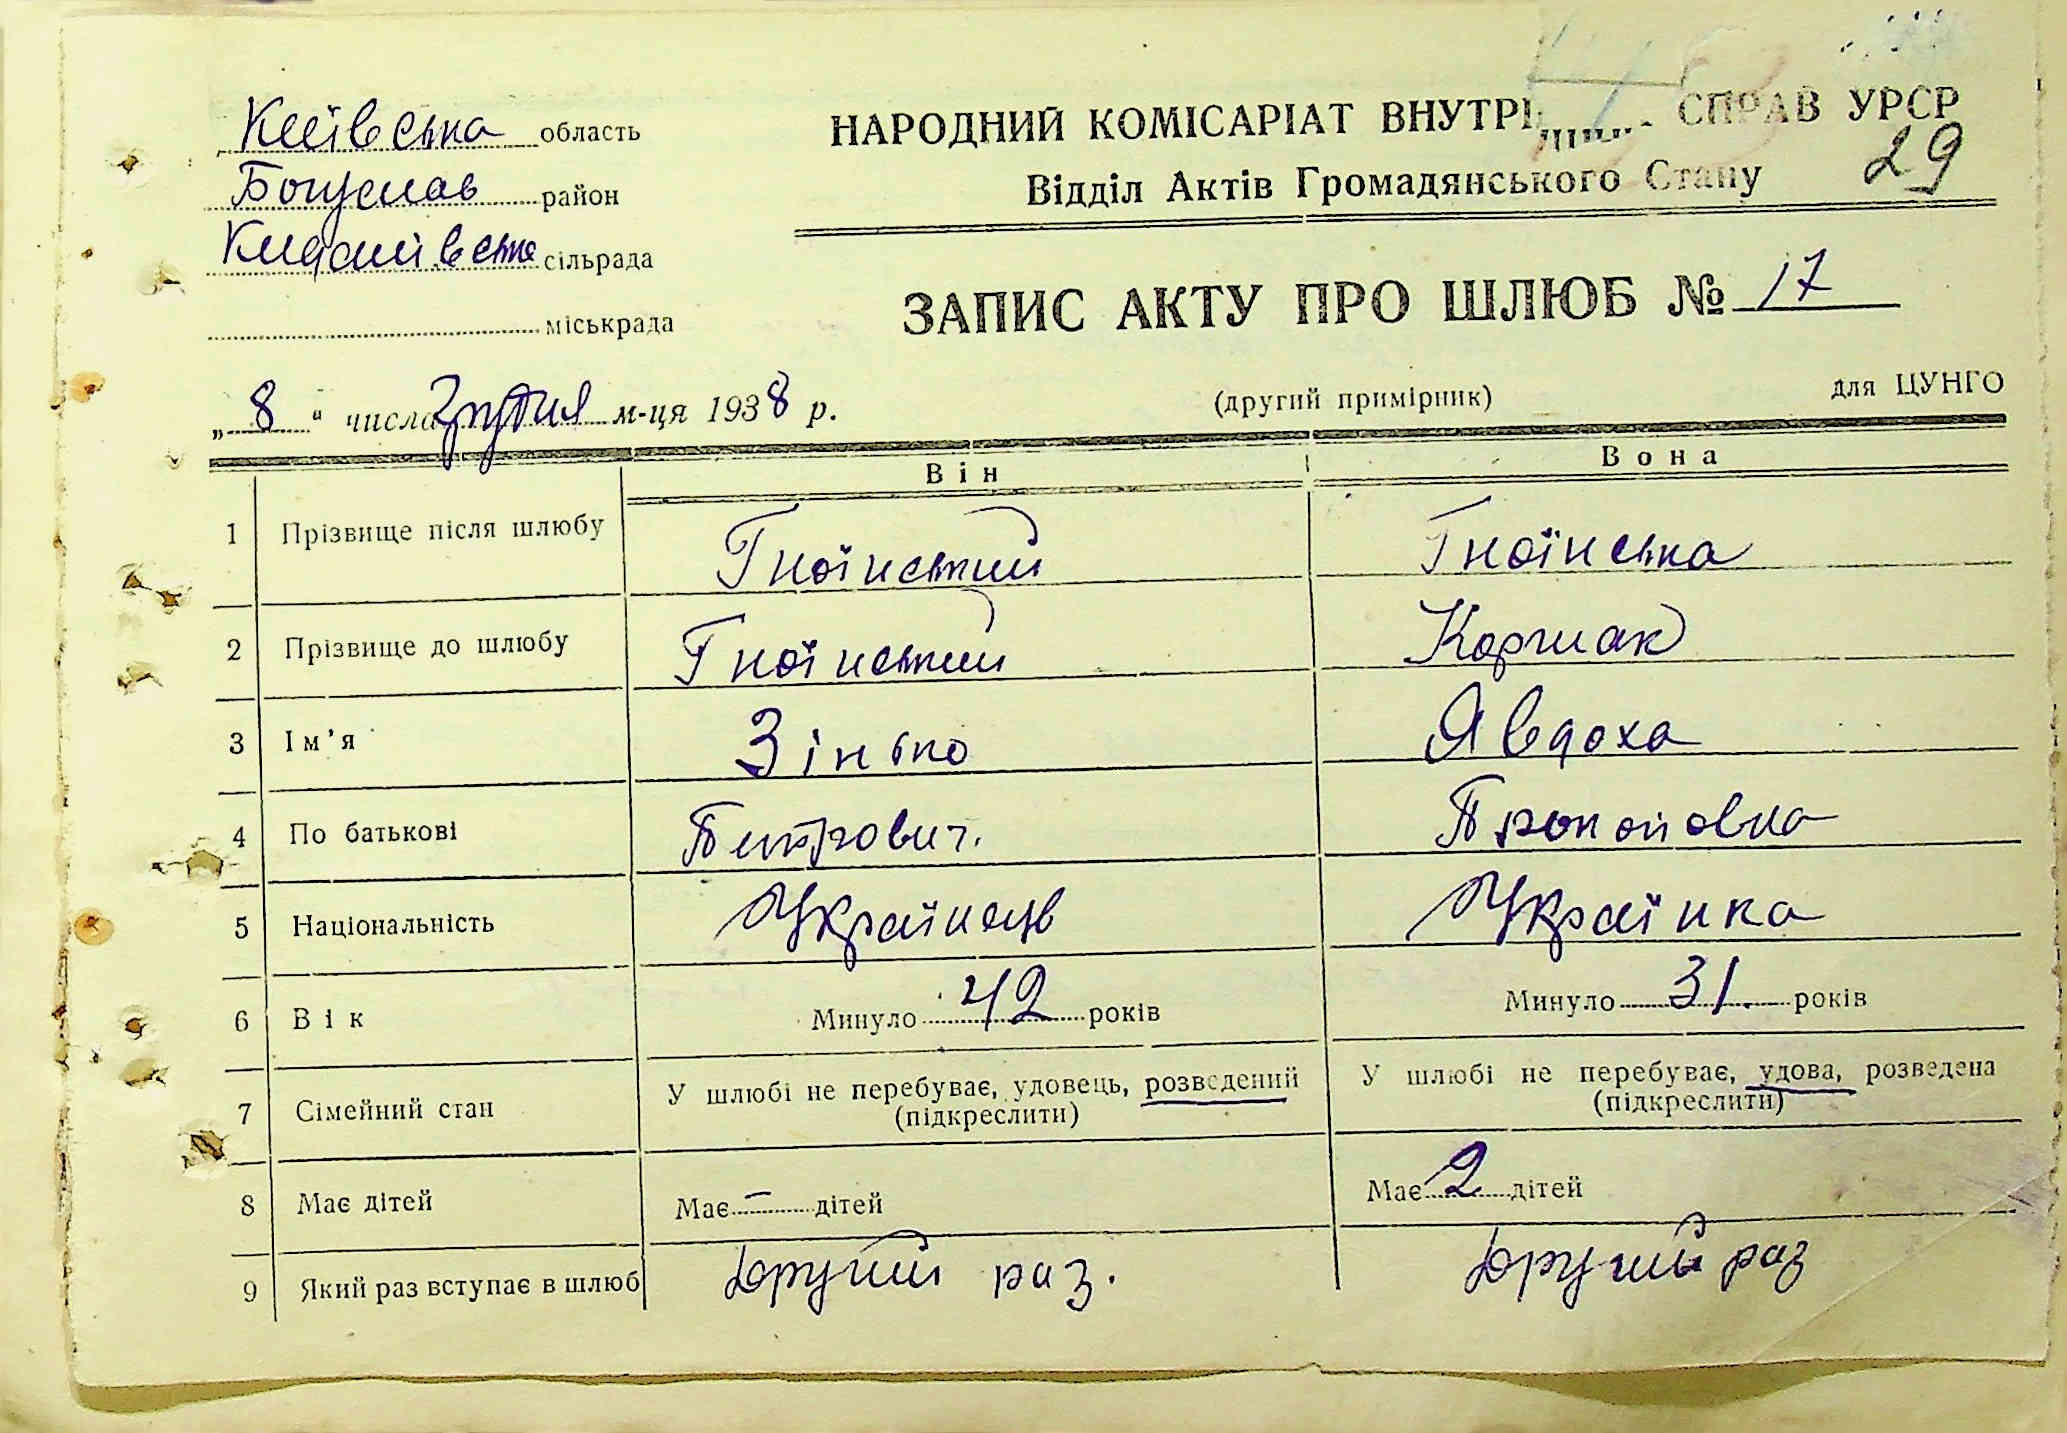 Київська область
Богуслав район
Киданиівська сільрада
міськрада
НАРОДНИЙ КОМІСАРІАТ ВНУТРІ СПРАВ УРСР
Відділ Актів Громадянського Стану
29
ЗАПИС АКТУ ПРО ШЛЮБ № 17
„8“ числа м-ця 1938 р.
(другий примірник)
для ЦУНГО
Він Вона
1 Прізвище після шлюбу Гноїнський Гноїнська
2 Прізвище до шлюбу Гноїнський Коржак
3 Ім'я Зінько Явдоха
4 По батькові Петрович. Прокоповна
5 Національність Українець Українка
6 Вік Минуло 42 років Минуло 31. років
7 Сімейний стан У шлюбі не перебуває, удовець, розведений (підкреслити) У шлюбі не перебуває, удова, розведена (підкреслити)
8 Має дітей Має – дітей Має 2 дітей
9 Який раз вступає в шлюб Другий раз. Другий раз